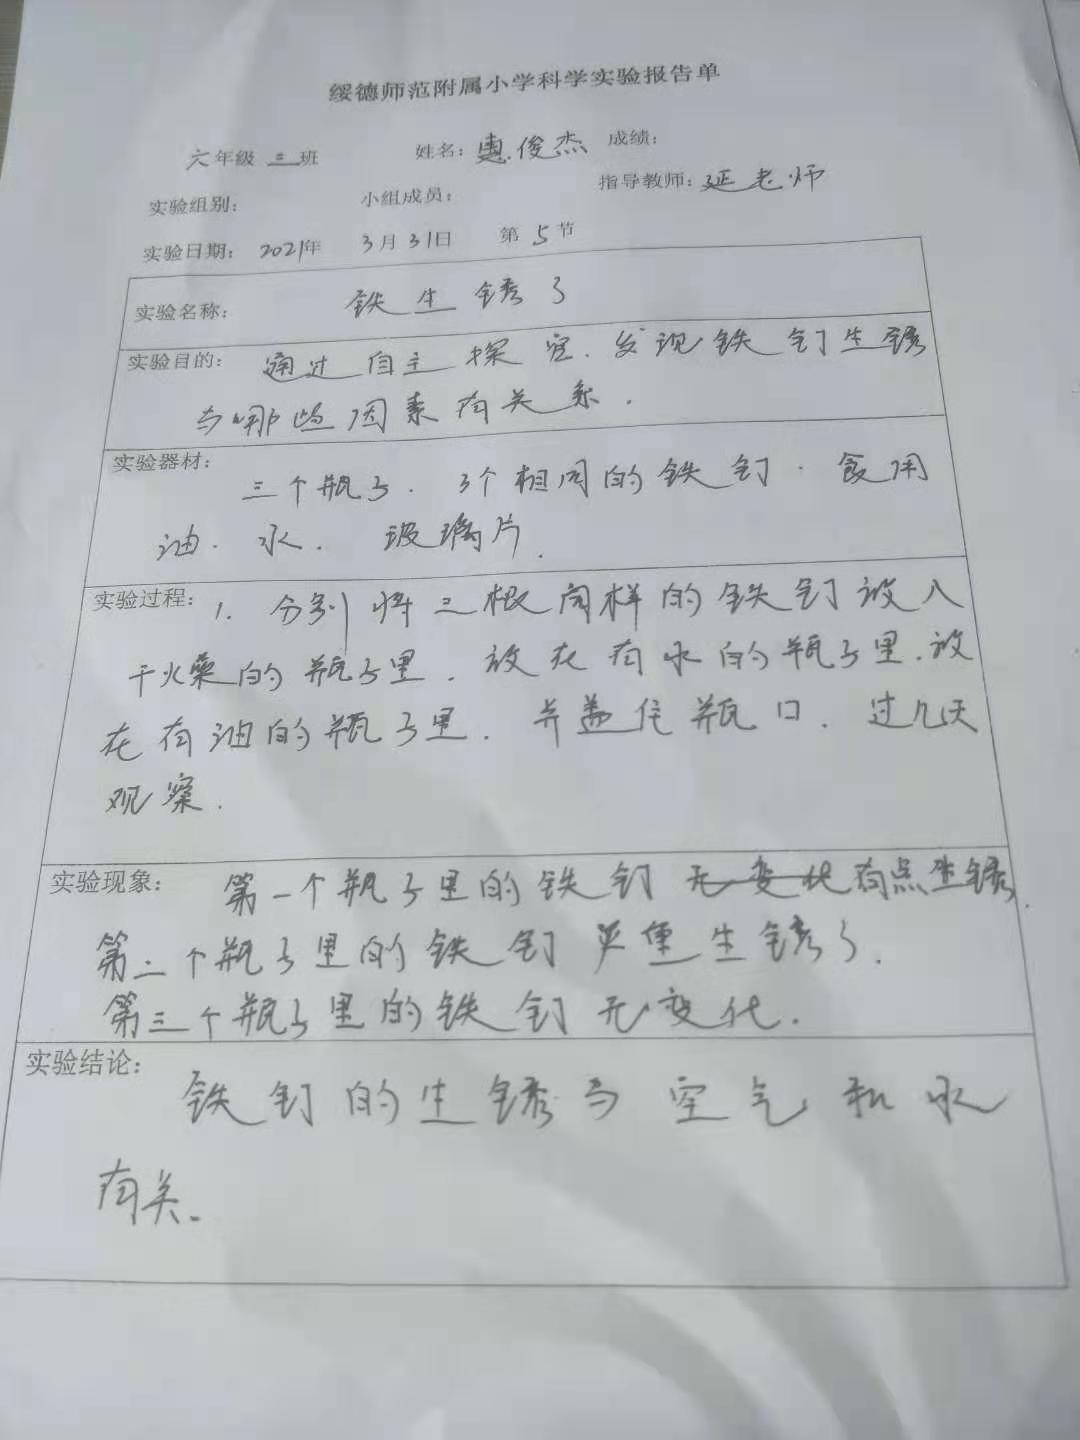 绥德师范附属小学科学实验报告单
六年级 二班 姓名：惠俊杰 成绩：
实验组别： 小组成员： 指导教师：延老师
实验日期： 2021年 3月31日 第5节
实验名称： 铁生锈了
实验目的： 通过自主探究.发现铁钉生锈
与哪些因素有关系.
实验器材： 三个瓶子.3个相同的铁钉.食用
油.水.玻璃片.
实验过程：1.分别将三根同样的铁钉放入
干燥的瓶子里.放在有水的瓶子里.放
在有油的瓶子里.并盖住瓶口.过几天
观察.
实验现象： 第一个瓶子里的铁钉无变化有点生锈.
第二个瓶子里的铁钉严重生锈了.
第三个瓶子里的铁钉无变化.
实验结论： 铁钉的生锈与空气和水
有关.